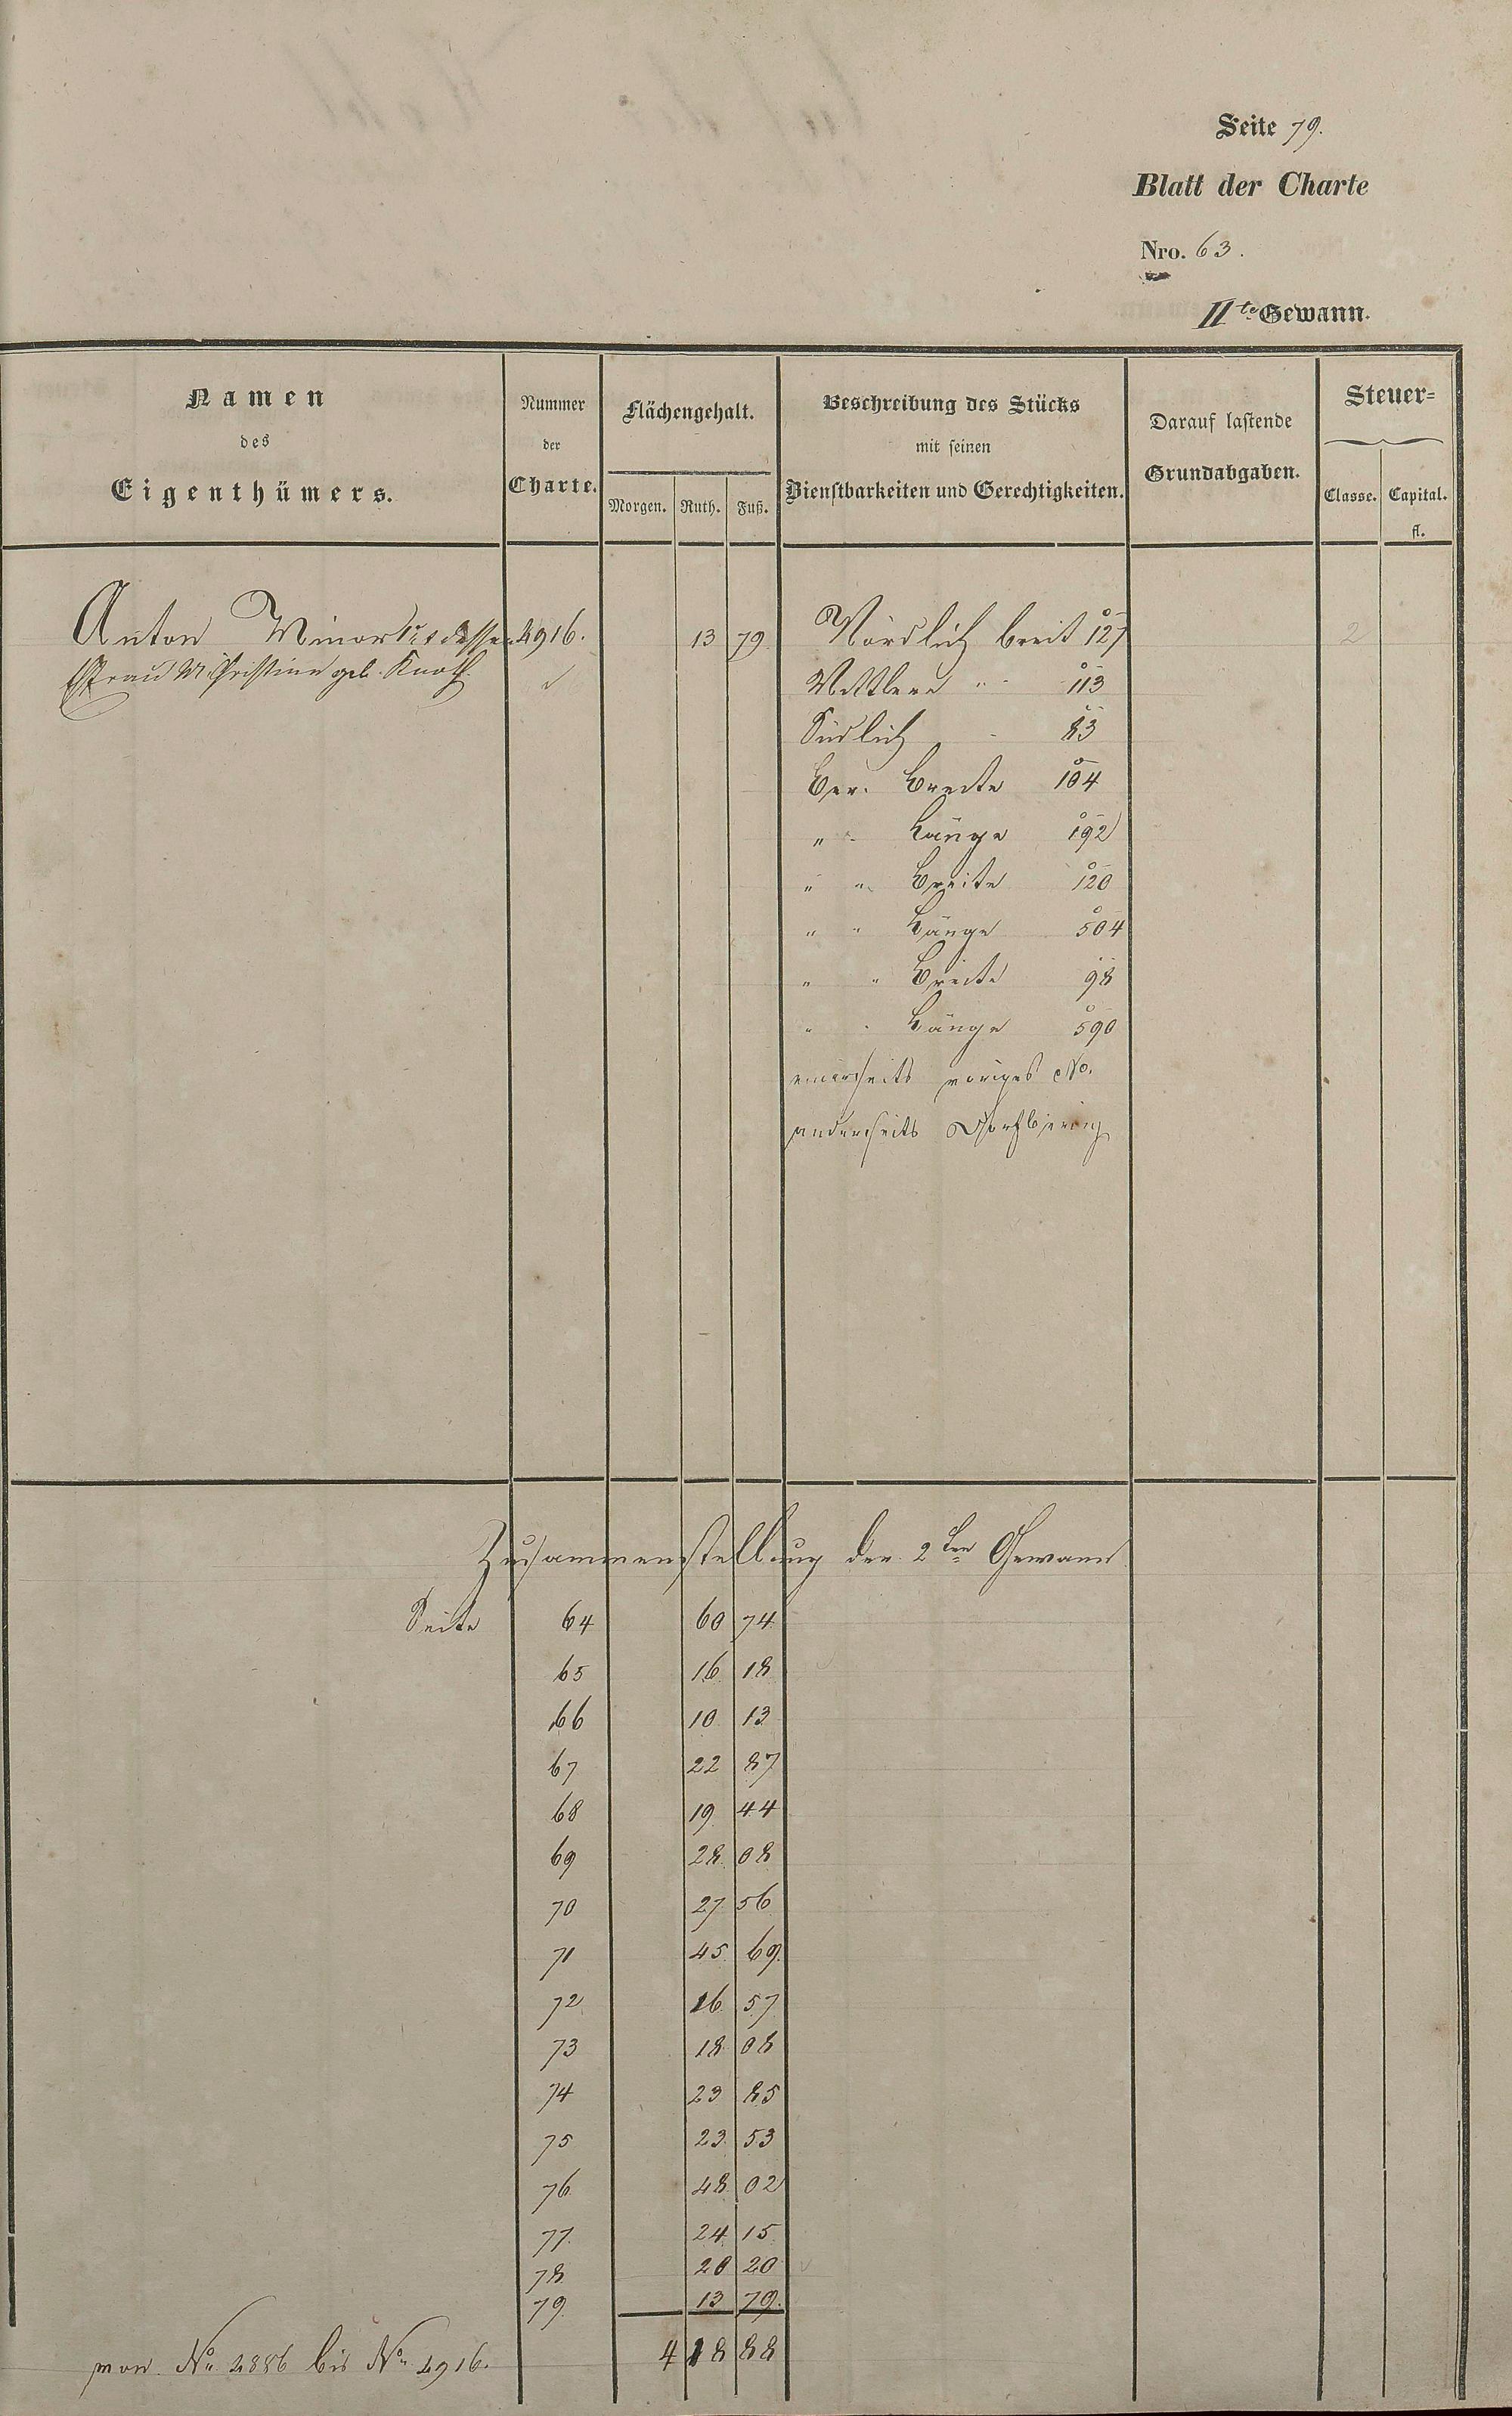 Seite 79.
Blatt der Charte
Nro. 63.
IIte Gewann.
Namen
des
Eigenthümers.
Nummer
der
Charte.
Flächengehalt.
Morgen. Ruth. Fuß.
Beschreibung des Stücks
mit seinen
Dienstbarkeiten und Gerechtigkeiten.
Darauf lastende
Grundabgaben.
Steuer-
Classe. Capital.
fl.
Anton Minor dessen 4916. 13 79 Nördlich breit 127 2
Ehefrau M. Christine geb. Knoth
Mittlere " 113
Südlich 83
Ber. Breite 104
" Länge 192
" " Breite 120
" " Länge 504
" " Breite 98
" " Länge 590
einerseits voriges No.
anderseits
Zusammenstellung der 2ten Gewann
Seite 64 60 74
65 16 18
66 10 13
67 22 87
68 19 44
69 28 08
70 27 56
71 45 69
72 16 57
73 18 08
74 23 85
75 23 53
76 48 02
77 24 15
78 20 20
79 13 79
von No 4886 bis No 4916. 4 18 88